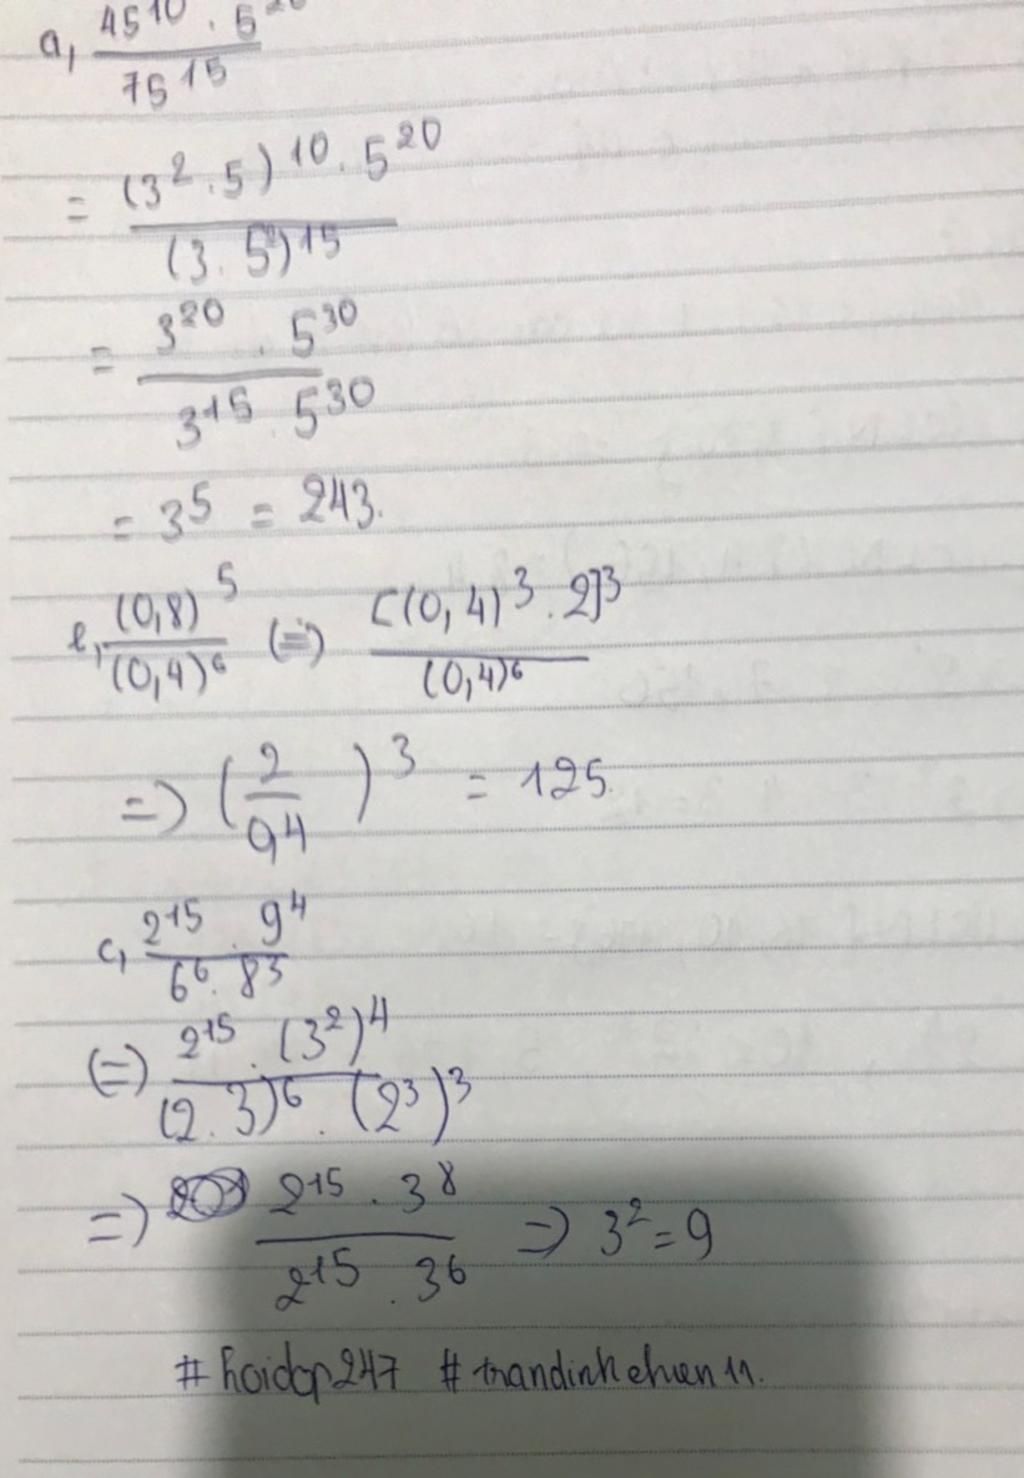 a, 45^10 . 5^20 / 75^15
= (3^2 . 5)^10 . 5^20 / (3 . 5^2)^15
= 3^20 . 5^30 / 3^15 . 5^30
= 3^5 = 243.
(0,8)^5 / (0,4)^6 (=) [(0,4)^3 . 2]^3 / (0,4)^6
=> (2 / 0,4)^3 = 125.
c, 2^15 . 9^4 / 6^6 . 8^3
(=) 2^15 . (3^2)^4 / (2 . 3)^6 . (2^3)^3
=> 2^15 . 3^8 / 2^15 . 3^6 => 3^2 = 9
#hoidap247 #